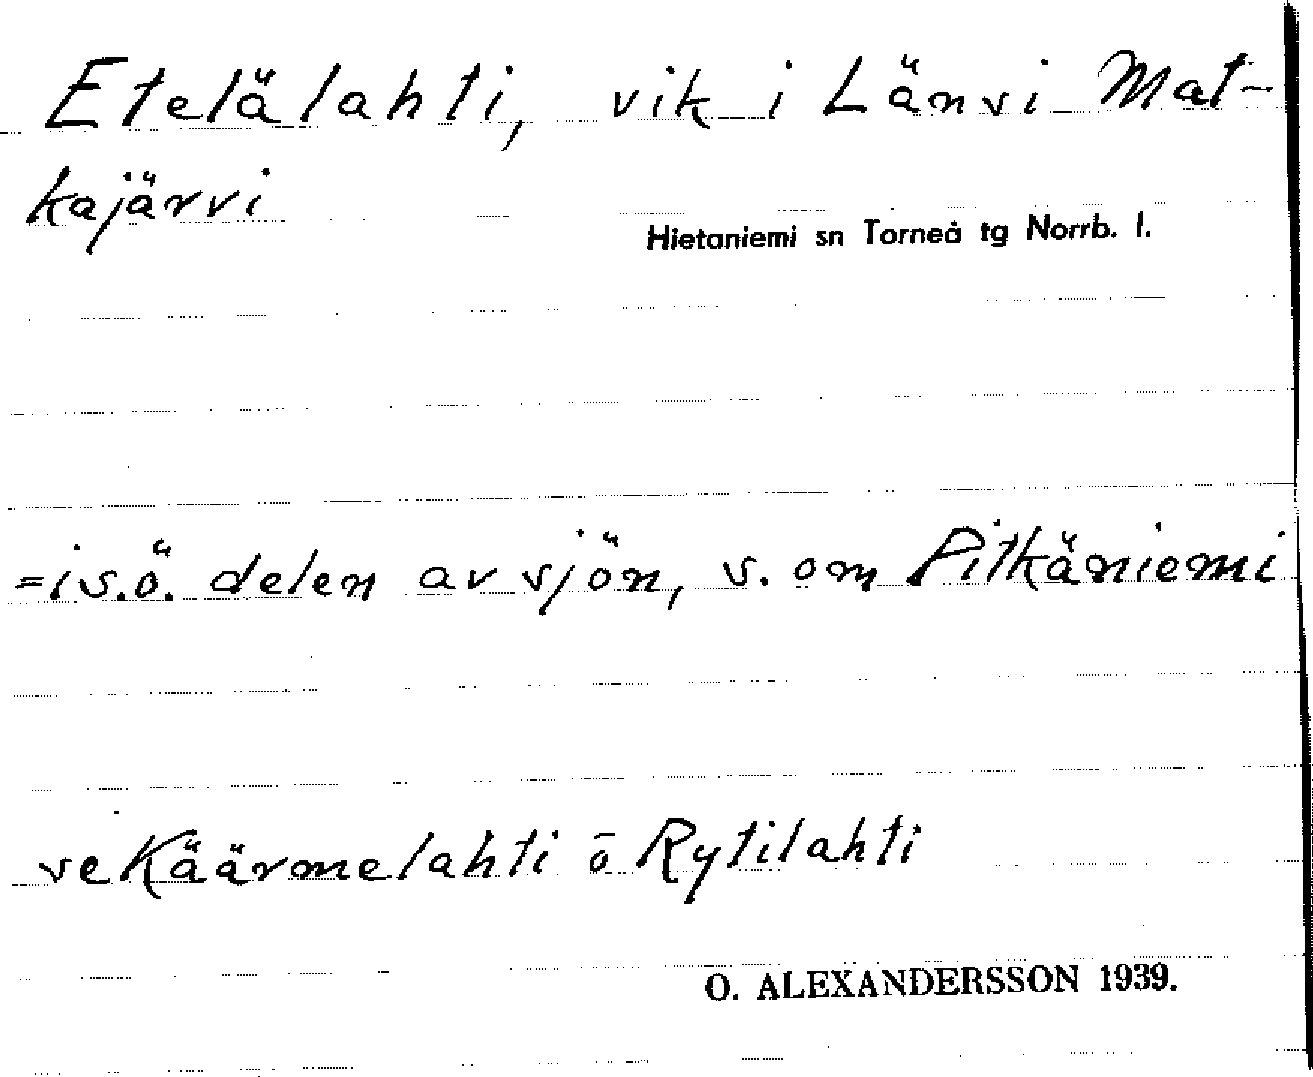 Etelälahti, vik i Länsi Mat-
kajärvi
Hietaniemi sn Torneå tg Norrb. l.
= i s.ö. delen av sjön, s. om Pitkäniemi
se Käärmelahti o Rytilahti
O. ALEXANDERSSON 1939.